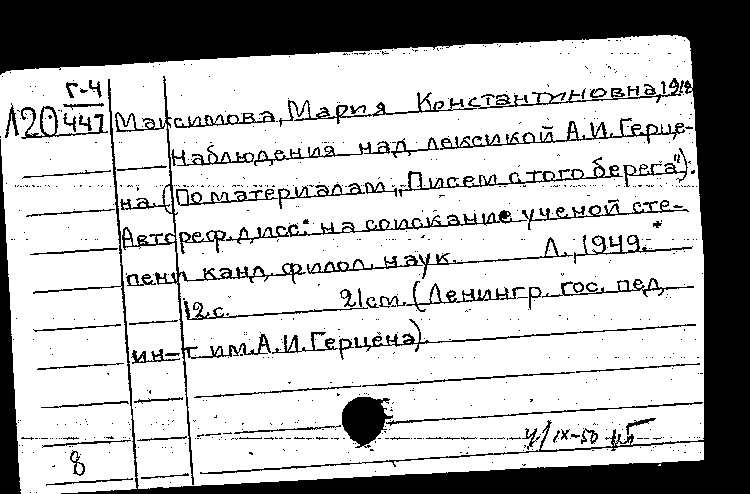 Г-4
Л20 447
Максимова, Мария Константиновна, 1918
Наблюдения над лексикой А.И. Герце-
на. (По материалам „Писем с того берега").
Автореф. дисс. на соискание ученой сте-
пени канд. филол. наук. Л., 1949.
12 с. 21 cm. (Ленингр. гос. пед.
ин-т им. А.И. Герцена).
8
IX-50